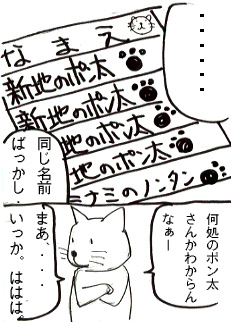 ・・・・・・
なまえ
新地のポン太
新地のポン太
地のポン太
地のポン太
ミナミのノンタン
同じ名前
ばっかし.
何処のポン太
さんかわからん
なぁー
まあ、・・・・
いっか。ははは。